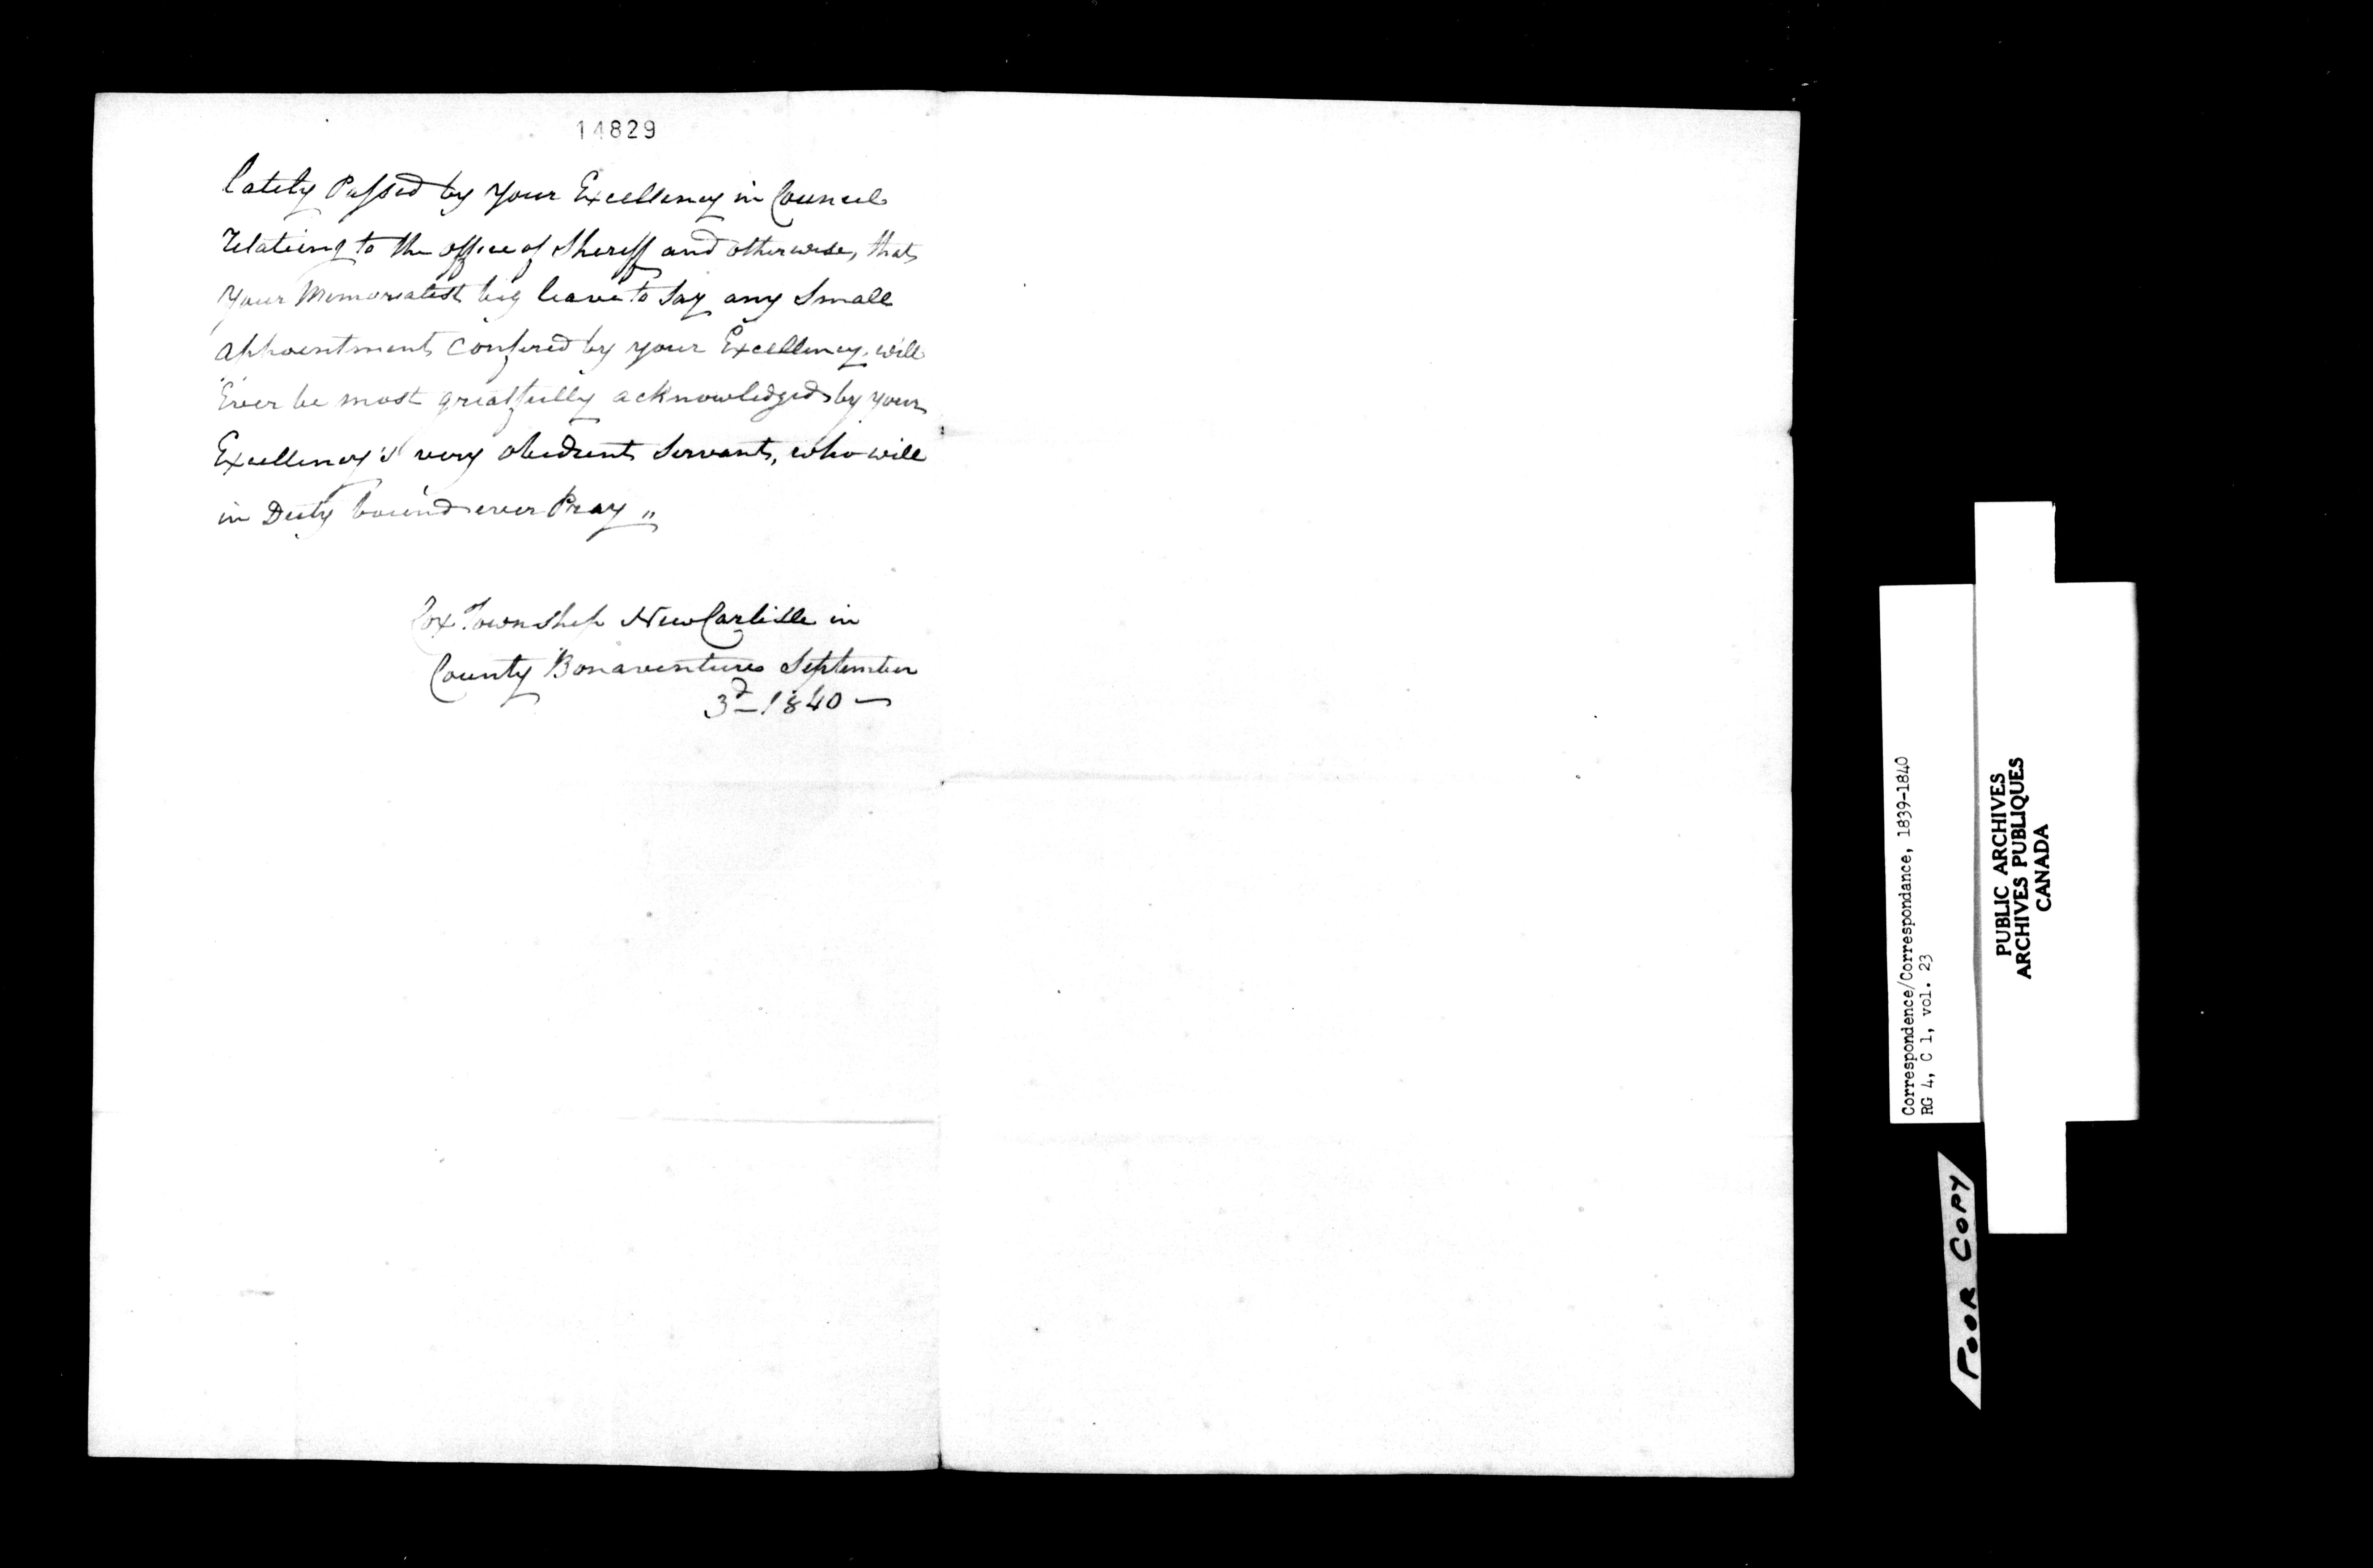 14829
lately Passed by your Excellency in Council
relateing to the office of Sheriff and otherwise, that
your Memorialist beg leave to say any small
appointment confered by your Excellency will
Ever be most greatfully acknowledged by your
Excellency's very obedient Servant, who will
in Duty bound ever Pray "
Cox Township New Carlisle in
County Bonaventure September
3d 1840 —
Correspondence/Correspondance, 1839-1840
RG 4, C 1, vol. 23
PUBLIC ARCHIVES
ARCHIVES PUBLIQUES
CANADA
POOR COPY